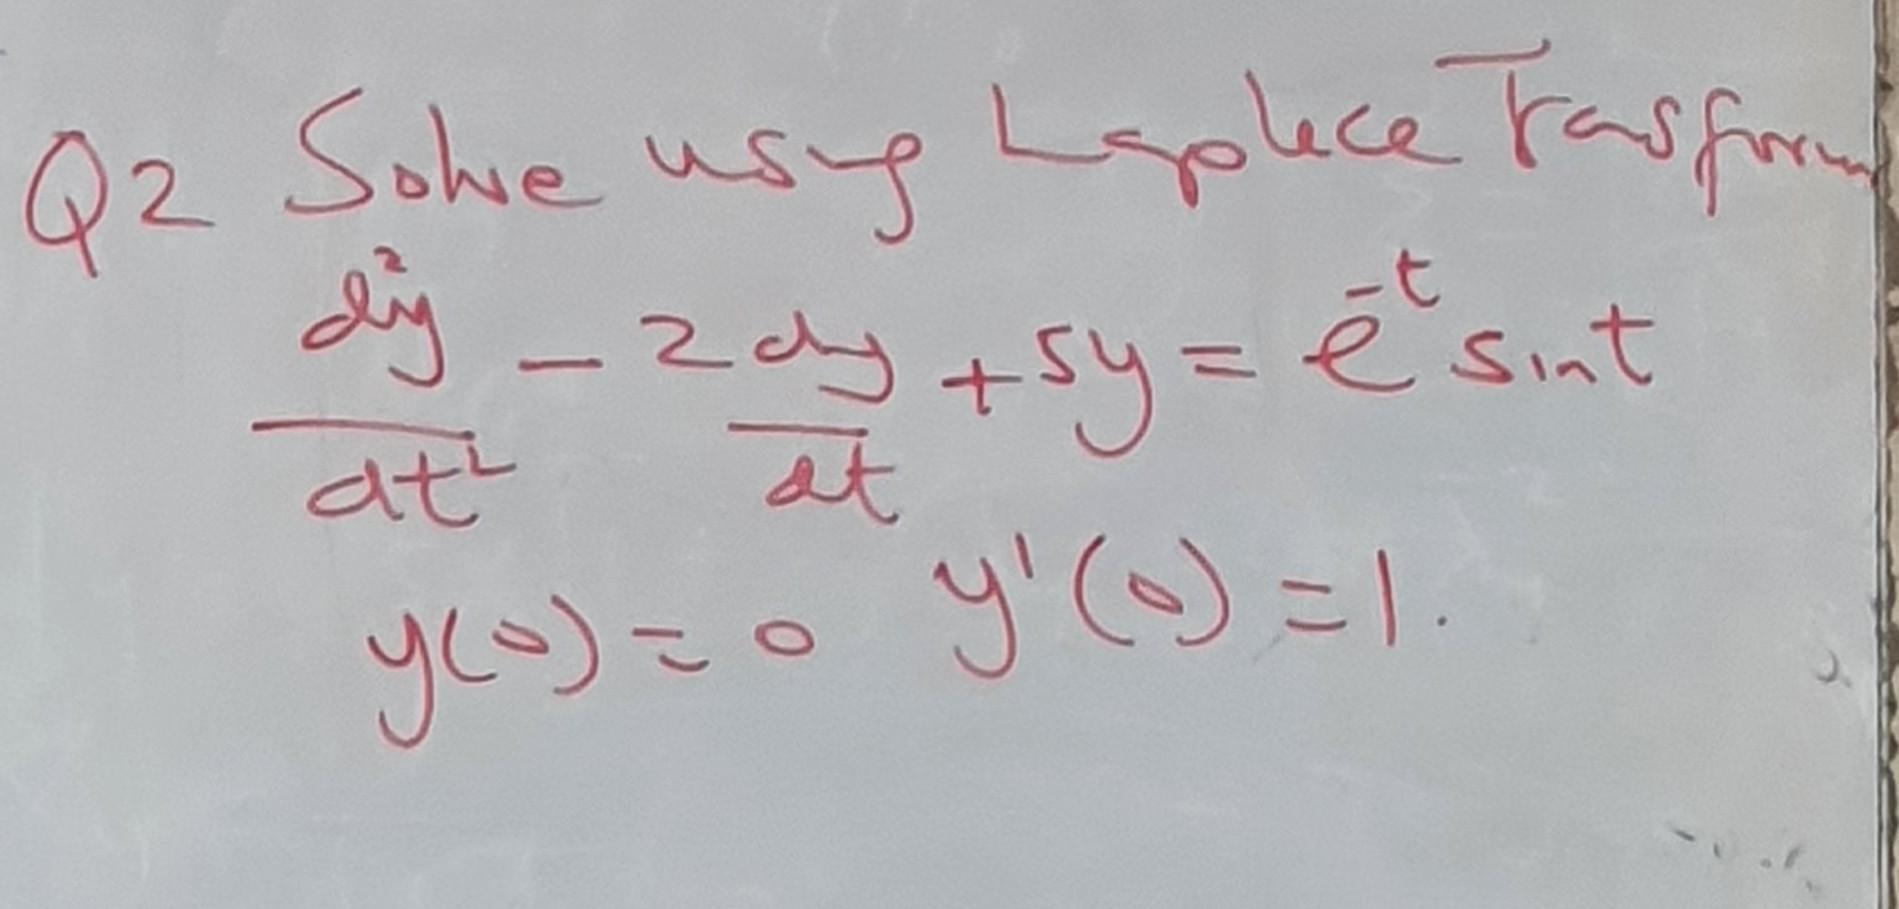 Q2 Solve using Laplace Trasform
d²y/dt² - 2dy/dt + 5y = e^-t sint
y(0) = 0 y'(0) = 1.